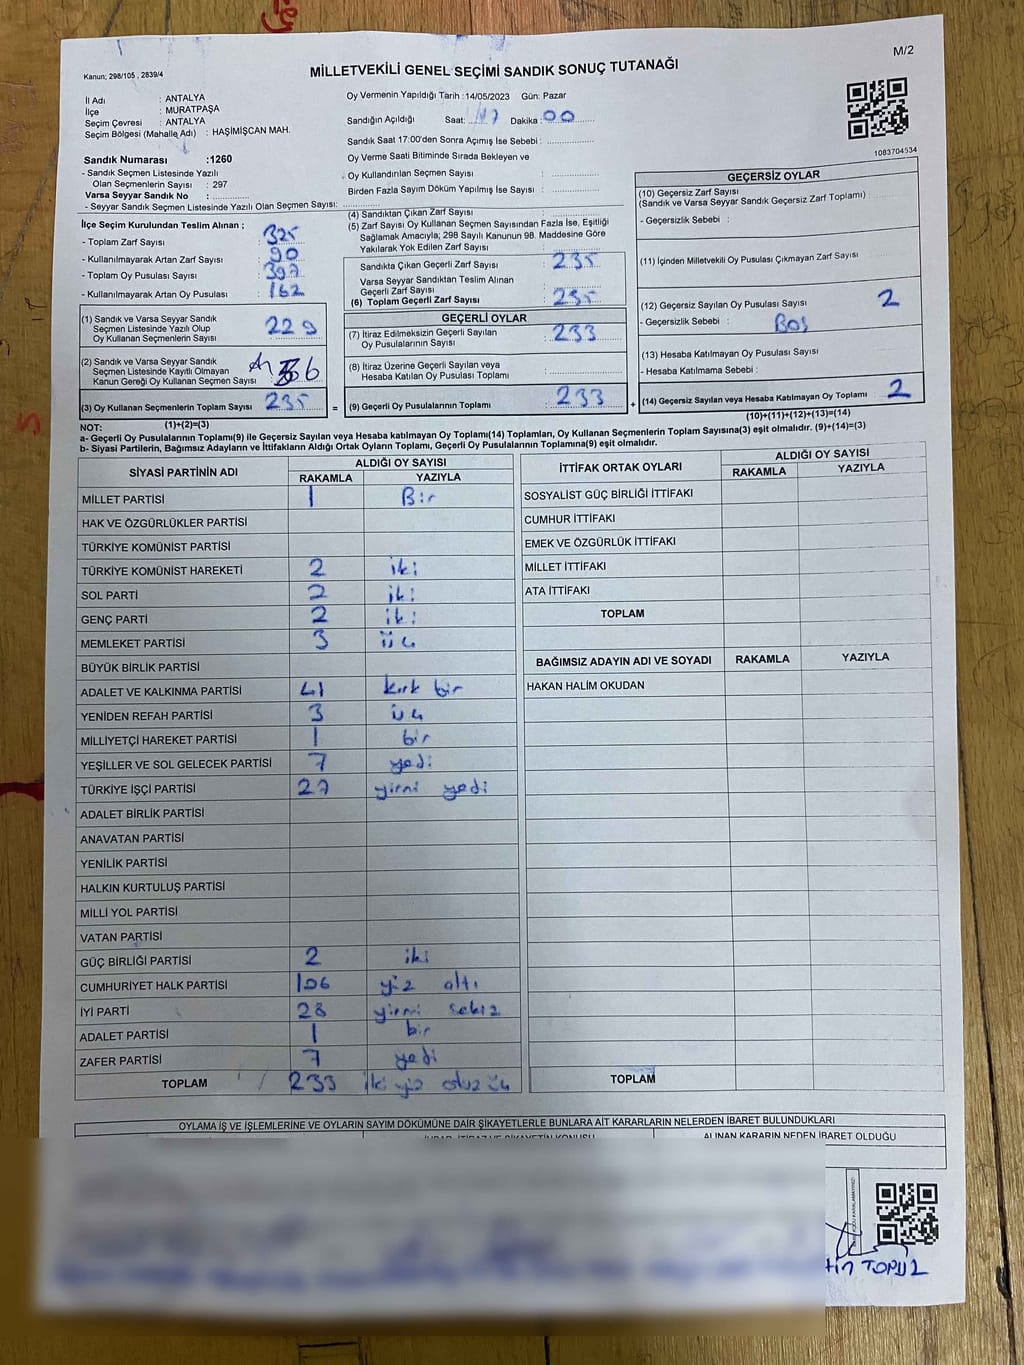 M/2
Kanun; 298/105 , 2839/4
MİLLETVEKİLİ GENEL SEÇİMİ SANDIK SONUÇ TUTANAĞI
İl Adı : ANTALYA
İlçe : MURATPAŞA
Seçim Çevresi : ANTALYA
Seçim Bölgesi (Mahalle Adı) : HAŞİMİŞCAN MAH.
Sandık Numarası :1260
- Sandık Seçmen Listesinde Yazılı
Olan Seçmenlerin Sayısı : 297
Varsa Seyyar Sandık No :
- Seyyar Sandık Seçmen Listesinde Yazılı Olan Seçmen Sayısı:
Oy Vermenin Yapıldığı Tarih :14/05/2023 Gün: Pazar
Sandığın Açıldığı Saat: 17 Dakika : 00
Sandık Saat 17:00'den Sonra Açımış İse Sebebi :
Oy Verme Saati Bitiminde Sırada Bekleyen ve
Oy Kullandırılan Seçmen Sayısı :
Birden Fazla Sayım Döküm Yapılmış İse Sayısı :
1083704534
İlçe Seçim Kurulundan Teslim Alınan ;
- Toplam Zarf Sayısı : 325
- Kullanılmayarak Artan Zarf Sayısı : 90
- Toplam Oy Pusulası Sayısı : 397
- Kullanılmayarak Artan Oy Pusulası : 162
(1) Sandık ve Varsa Seyyar Sandık
Seçmen Listesinde Yazılı Olup
Oy Kullanan Seçmenlerin Sayısı : 229
(2) Sandık ve Varsa Seyyar Sandık
Seçmen Listesinde Kayıtlı Olmayan
Kanun Gereği Oy Kullanan Seçmen Sayısı : 6
(3) Oy Kullanan Seçmenlerin Toplam Sayısı : 235
(1)+(2)=(3)
(4) Sandıktan Çıkan Zarf Sayısı :
(5) Zarf Sayısı Oy Kullanan Seçmen Sayısından Fazla İse, Eşitliği
Sağlamak Amacıyla, 298 Sayılı Kanunun 98. Maddesine Göre
Yakılarak Yok Edilen Zarf Sayısı :
Sandıkta Çıkan Geçerli Zarf Sayısı : 235
Varsa Seyyar Sandıktan Teslim Alınan
Geçerli Zarf Sayısı :
(6) Toplam Geçerli Zarf Sayısı : 235
GEÇERLİ OYLAR
(7) İtiraz Edilmeksizin Geçerli Sayılan
Oy Pusulalarının Sayısı : 233
(8) İtiraz Üzerine Geçerli Sayılan veya
Hesaba Katılan Oy Pusulası Toplamı :
= (9) Geçerli Oy Pusulalarının Toplamı : 233
GEÇERSİZ OYLAR
(10) Geçersiz Zarf Sayısı
(Sandık ve Varsa Seyyar Sandık Geçersiz Zarf Toplamı) :
- Geçersizlik Sebebi :
(11) İçinden Milletvekili Oy Pusulası Çıkmayan Zarf Sayısı :
(12) Geçersiz Sayılan Oy Pusulası Sayısı : 2
- Geçersizlik Sebebi : Boş
(13) Hesaba Katılmayan Oy Pusulası Sayısı :
- Hesaba Katılmama Sebebi :
+ (14) Geçersiz Sayılan veya Hesaba Katılmayan Oy Toplamı : 2
(10)+(11)+(12)+(13)=(14)
NOT:
a- Geçerli Oy Pusulalarının Toplamı(9) ile Geçersiz Sayılan veya Hesaba katılmayan Oy Toplamı(14) Toplamları, Oy Kullanan Seçmenlerin Toplam Sayısına(3) eşit olmalıdır. (9)+(14)=(3)
b- Siyasi Partilerin, Bağımsız Adayların ve İttifakların Aldığı Ortak Oyların Toplamı, Geçerli Oy Pusulalarının Toplamına(9) eşit olmalıdır.
SİYASİ PARTİNİN ADI ALDIĞI OY SAYISI
RAKAMLA YAZIYLA
MİLLET PARTİSİ 1 Bir
HAK VE ÖZGÜRLÜKLER PARTİSİ
TÜRKİYE KOMÜNİST PARTİSİ
TÜRKİYE KOMÜNİST HAREKETİ 2 iki
SOL PARTİ 2 iki
GENÇ PARTİ 2 iki
MEMLEKET PARTİSİ 3 üç
BÜYÜK BİRLİK PARTİSİ
ADALET VE KALKINMA PARTİSİ 41 kırk bir
YENİDEN REFAH PARTİSİ 3 üç
MİLLİYETÇİ HAREKET PARTİSİ 1 bir
YEŞİLLER VE SOL GELECEK PARTİSİ 7 yedi
TÜRKİYE İŞÇİ PARTİSİ 27 yirmi yedi
ADALET BİRLİK PARTİSİ
ANAVATAN PARTİSİ
YENİLİK PARTİSİ
HALKIN KURTULUŞ PARTİSİ
MİLLİ YOL PARTİSİ
VATAN PARTİSİ
GÜÇ BİRLİĞİ PARTİSİ 2 iki
CUMHURİYET HALK PARTİSİ 106 yüz altı
İYİ PARTİ 28 yirmi sekiz
ADALET PARTİSİ 1 bir
ZAFER PARTİSİ 7 yedi
TOPLAM 233 iki yüz otuz üç
İTTİFAK ORTAK OYLARI ALDIĞI OY SAYISI
RAKAMLA YAZIYLA
SOSYALİST GÜÇ BİRLİĞİ İTTİFAKI
CUMHUR İTTİFAKI
EMEK VE ÖZGÜRLÜK İTTİFAKI
MİLLET İTTİFAKI
ATA İTTİFAKI
TOPLAM
BAĞIMSIZ ADAYIN ADI VE SOYADI RAKAMLA YAZIYLA
HAKAN HALİM OKUDAN
TOPLAM
OYLAMA İŞ VE İŞLEMLERİNE VE OYLARIN SAYIM DÖKÜMÜNE DAİR ŞİKAYETLERLE BUNLARA AİT KARARLARIN NELERDEN İBARET BULUNDUKLARI
ALINAN KARARIN NEDEN İBARET OLDUĞU